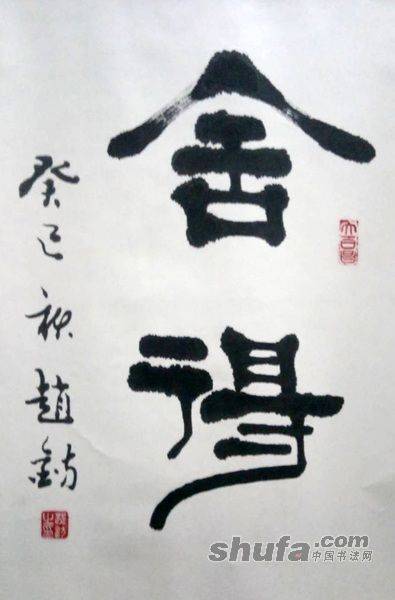 舍得
癸巳秋趙
shufa.com
中国书法网